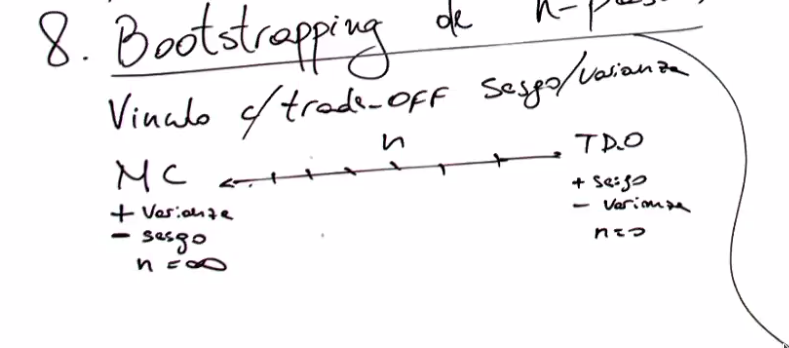 8. Bootstrapping de n-pasos
Vinculo c/ trade-OFF sesgo/varianza
MC n TD.O
+ varianza + sesgo
- sesgo - varianza
n = ∞ n=0